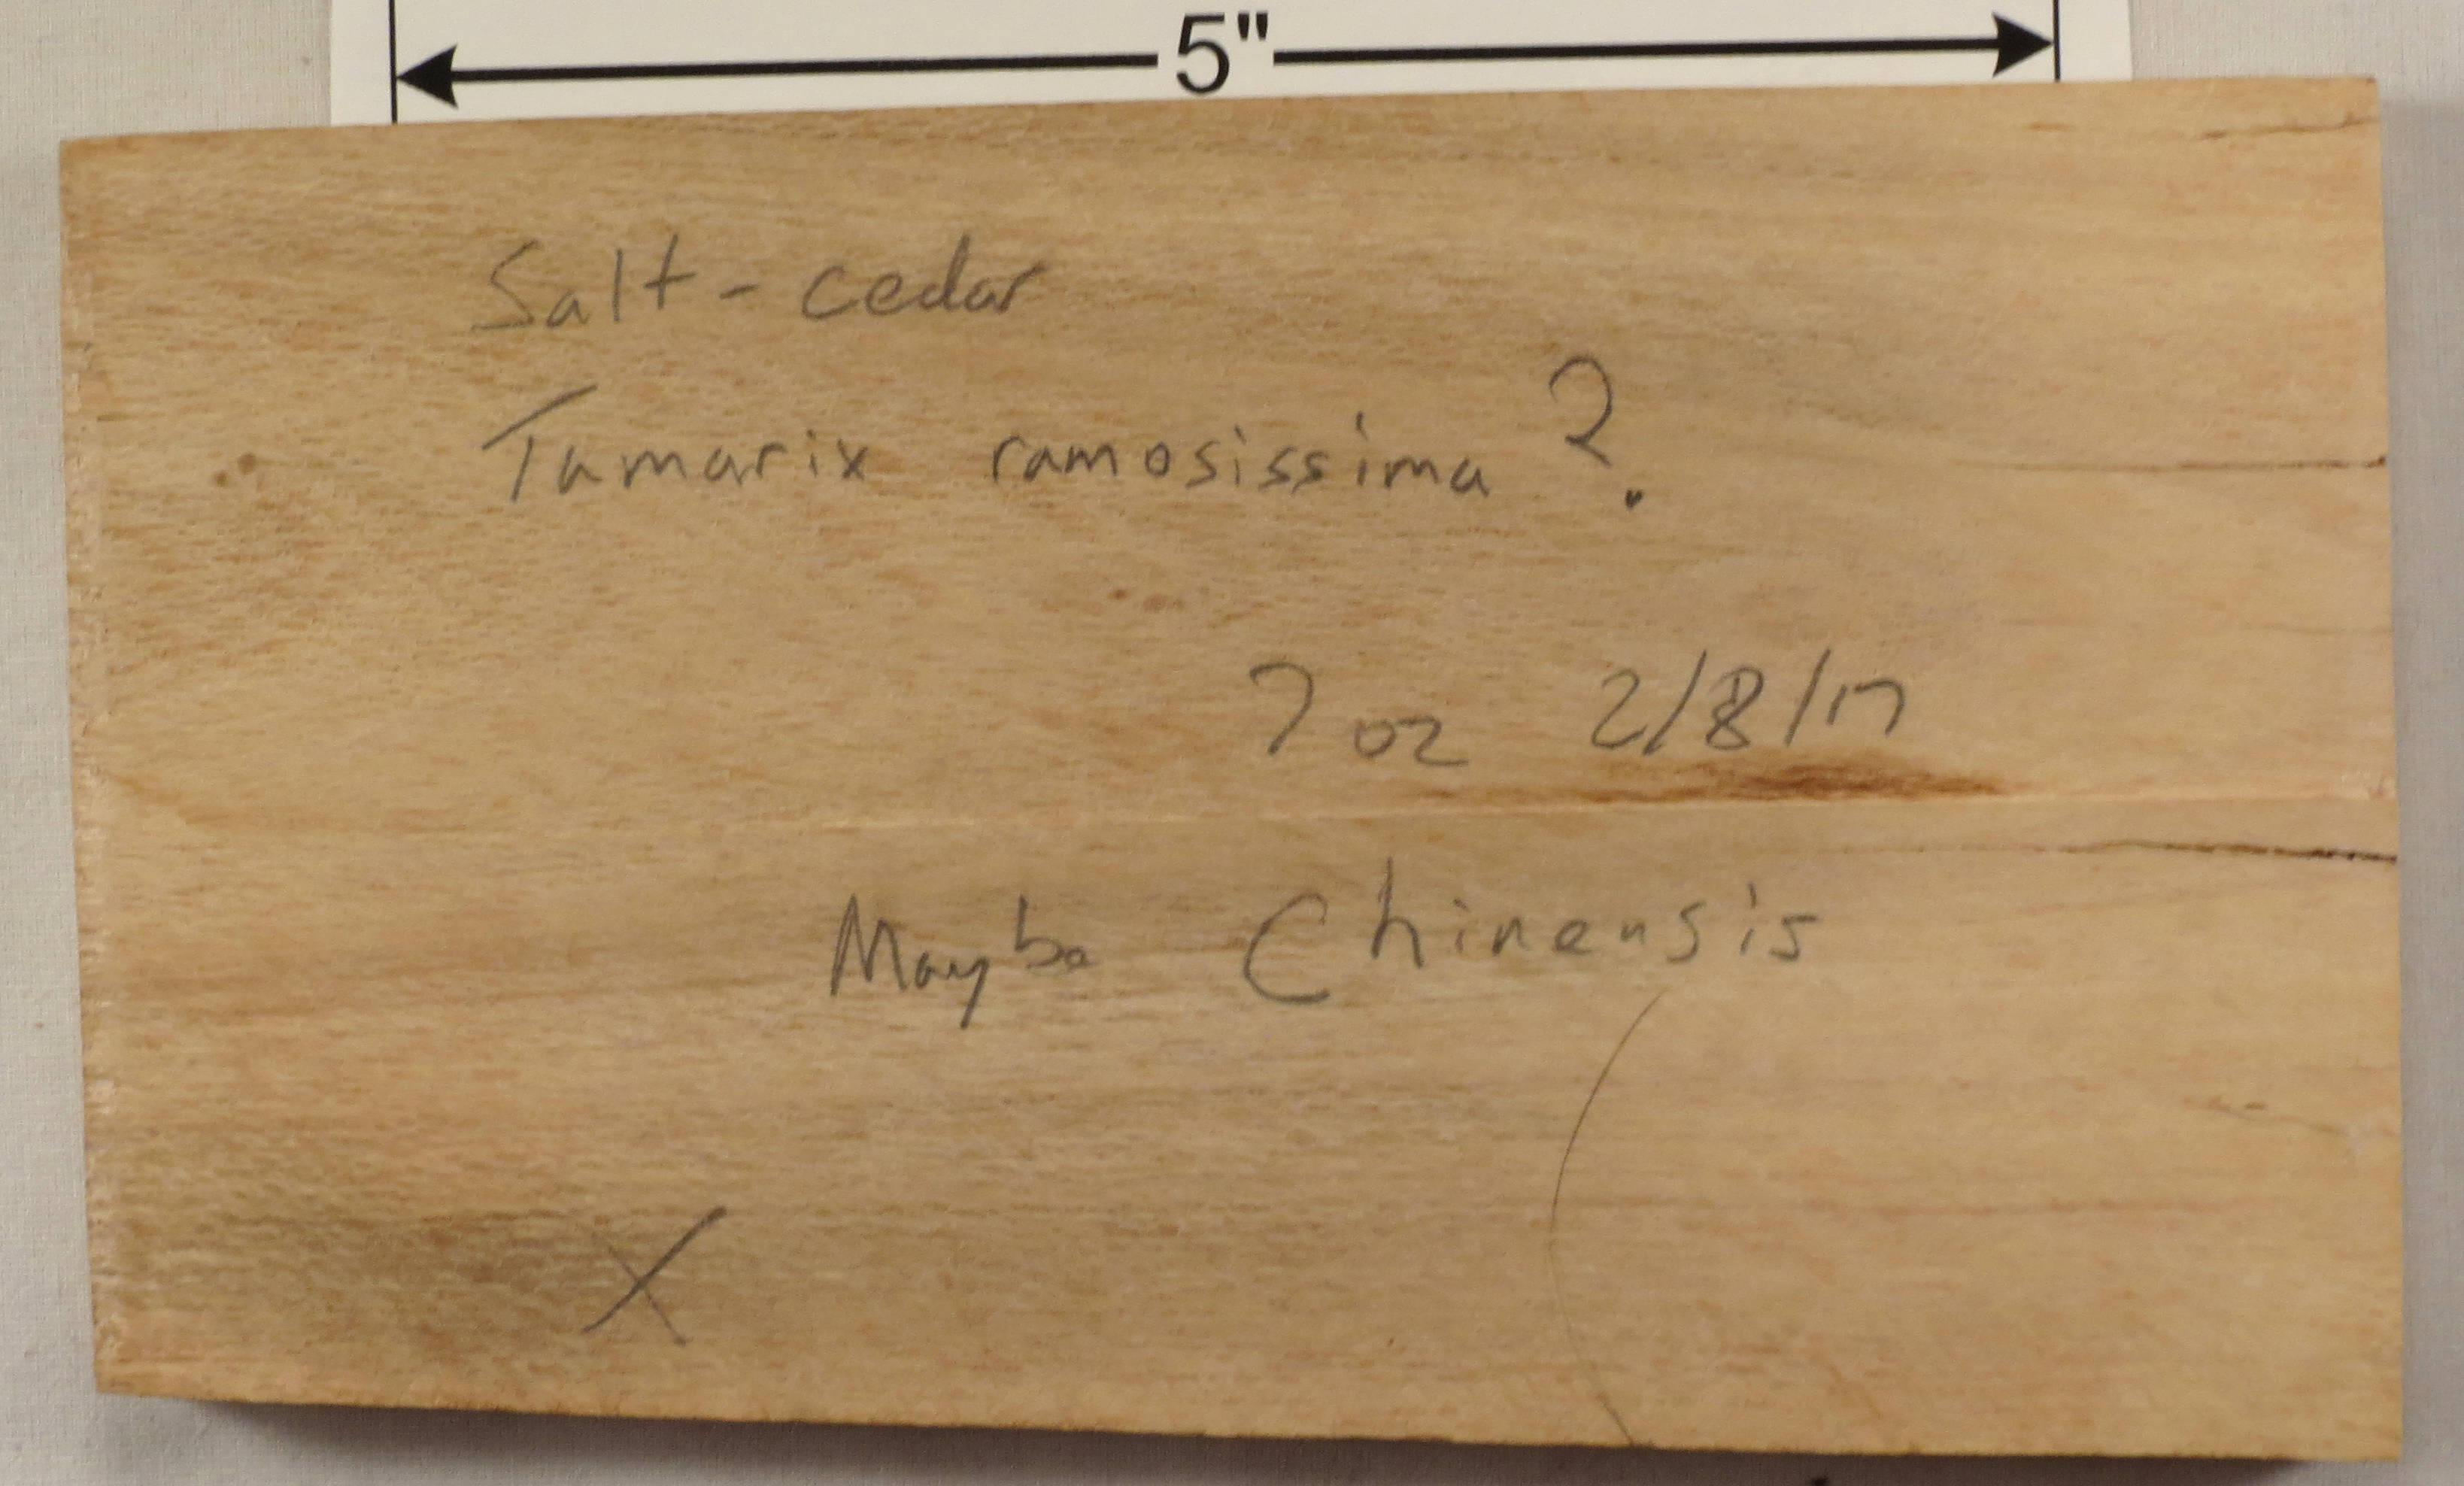 5"
Salt-cedar
Tamarix ramosissima ?
7 oz 2/8/17
Maybe Chinensis
X